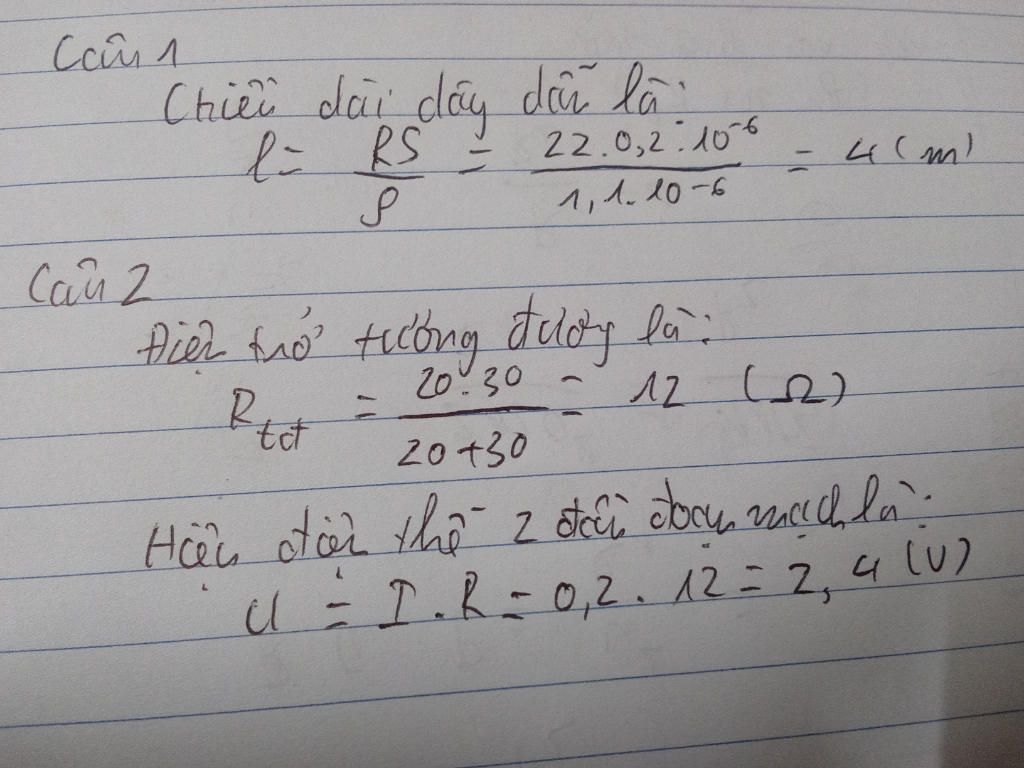 Câu 1
Chiều dài dây dẫn là:
l = RS / ρ = 22.0,2.10⁻⁶ / 1,1.10⁻⁶ = 4 (m)
Câu 2
Điện trở tương đương là:
R_tđ = 20.30 / 20+30 = 12 (Ω)
Hiệu điện thế 2 đầu đoạn mạch là:
U = I.R = 0,2.12 = 2,4 (V)